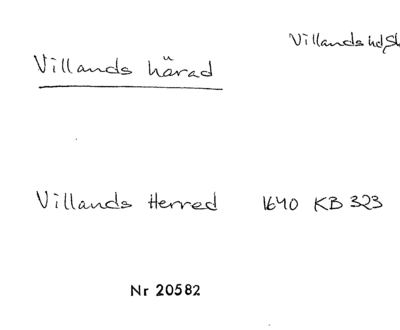 Villands hd, Sk
Villands härad
Villands Herred 1640 KB 323
Nr 20582